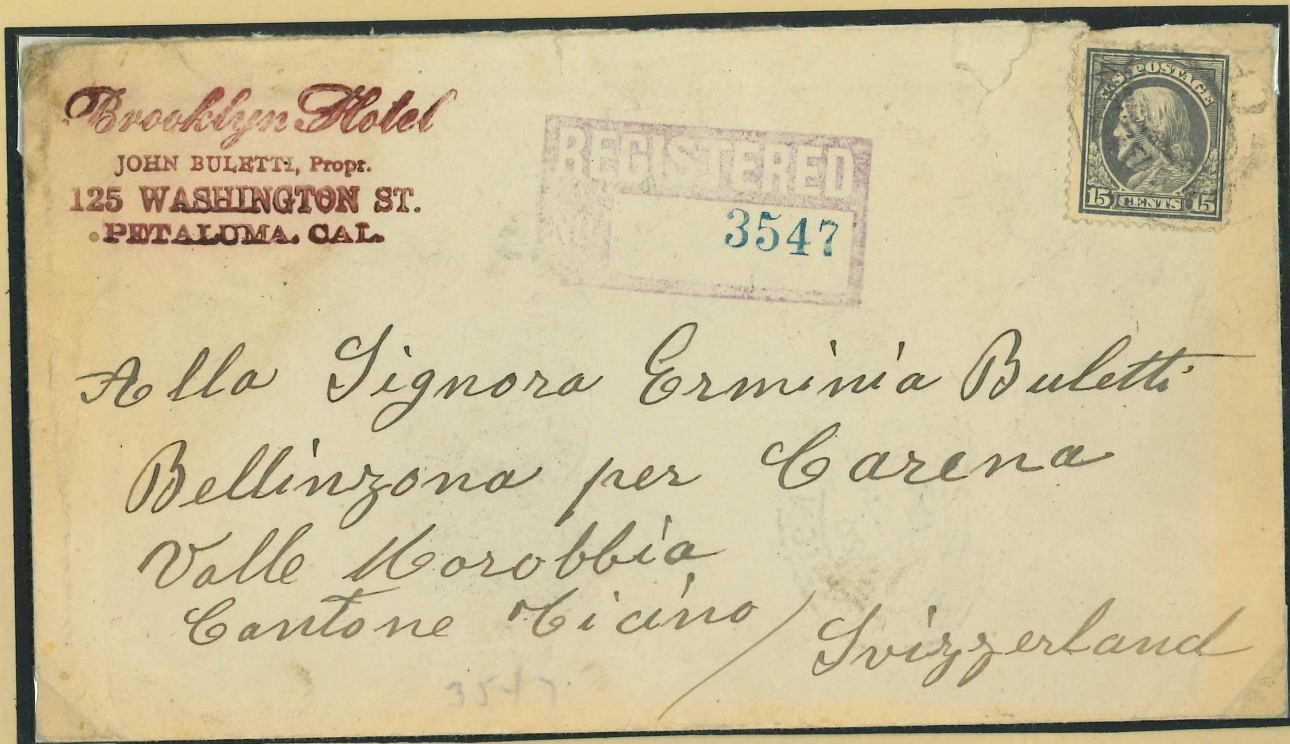 Brooklyn Hotel
JOHN BULETTI, Propr.
125 WASHINGTON ST.
PETALUMA, CAL.
REGISTERED
NO.
3547
U.S. POSTAGE
15 CENTS 15
Alla Signora Erminia Buletti
Bellinzona per Carena
Valle Morobbia
Cantone Ticino / Svizzerland
3547